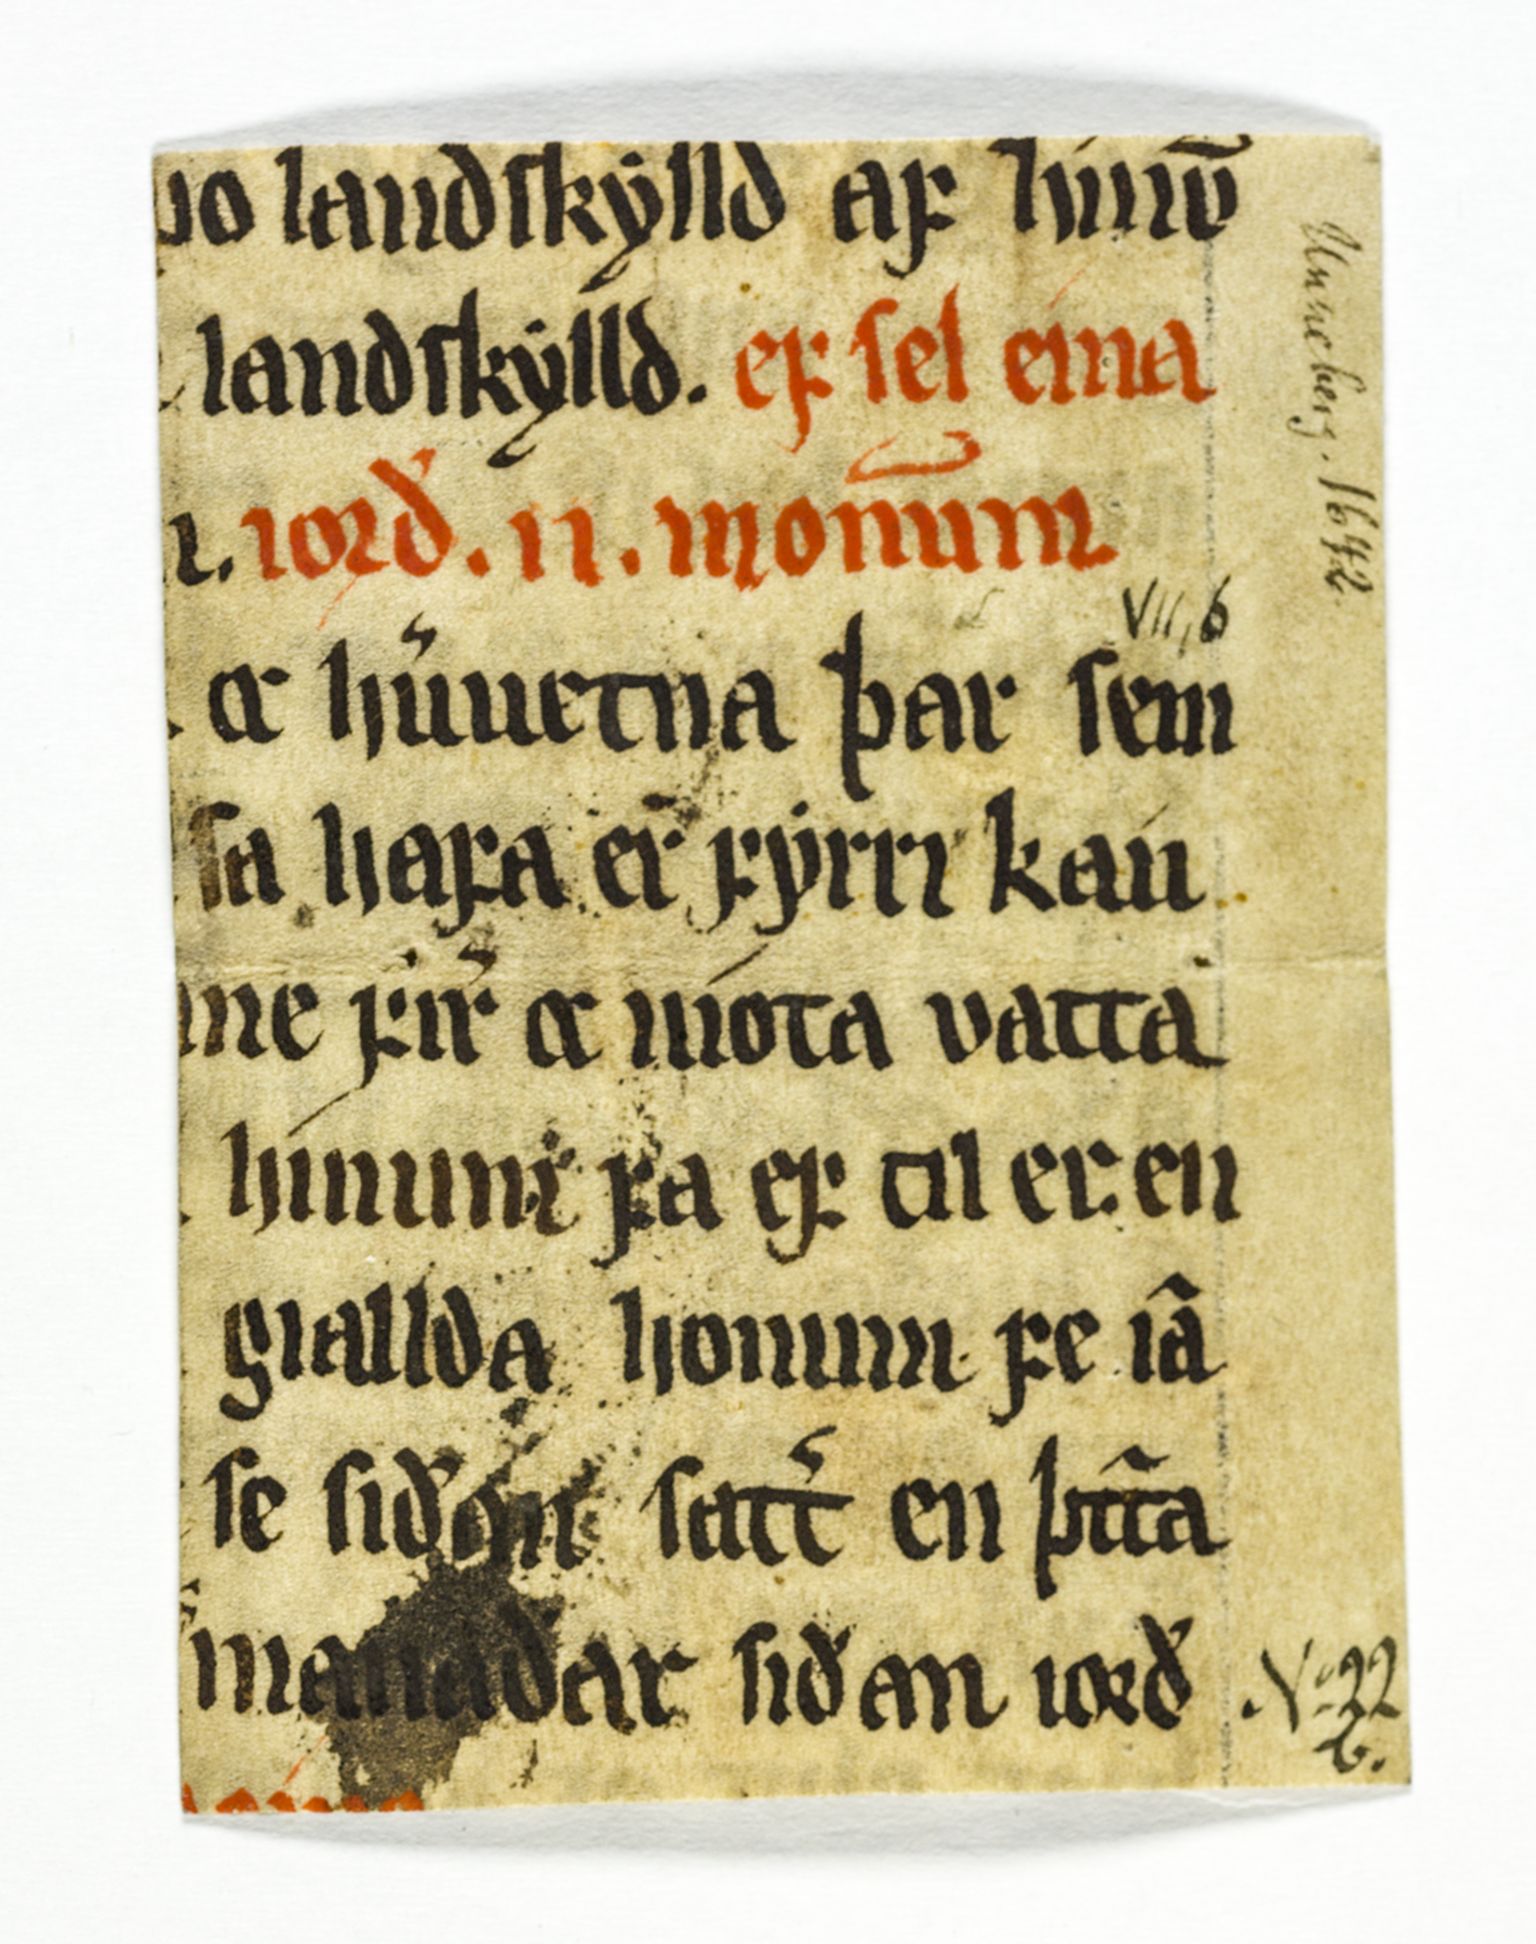 uo landſkÿlld aꝼ hinū
landſkÿlld. eꝼ ſel eina
iorð. ii. monnum
ꝛ hueruetna þar ſem
ſa hafa er fyrri kau
nne firir ꝛ niota vatta
hinum fa ef til er. en
giallda honum fe ia
ſe ſiðan ſatt en þetta
manadar ſiðan iorð
VII,6
Unneberg. 1642.
No 22
b.